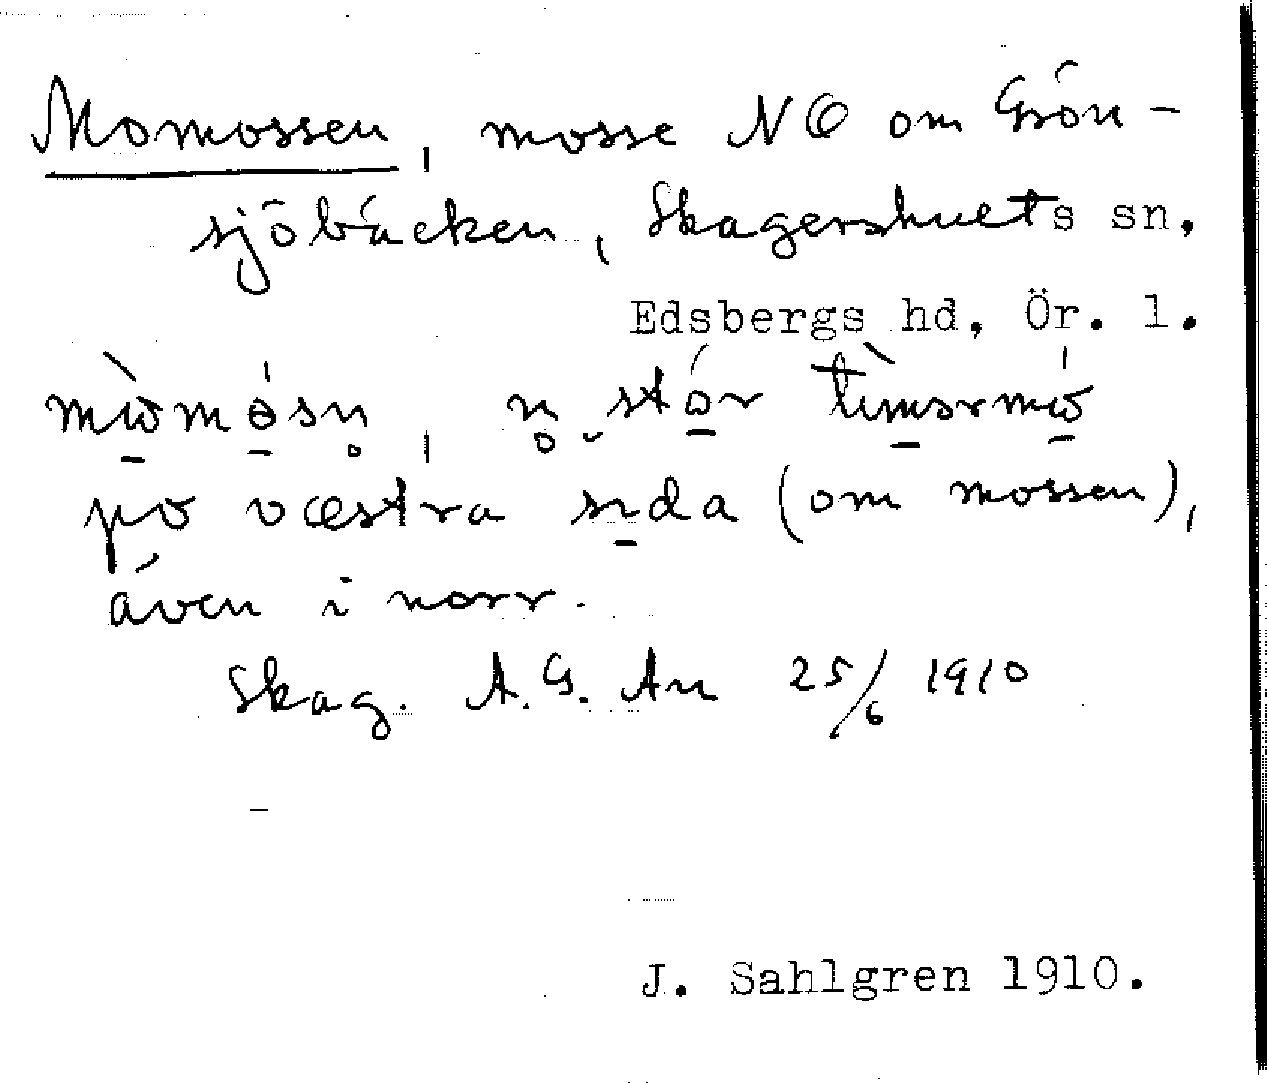 Momossen, mosse NO om Grön-
sjöbäcken, Skagershults sn,
Edsbergs hd, Ör. l.
mòmósn, n stór tìmərmó
po væstra sida (om mossen),
även i norr.
Skag. A.G. An 25/6 1910
J. Sahlgren 1910.